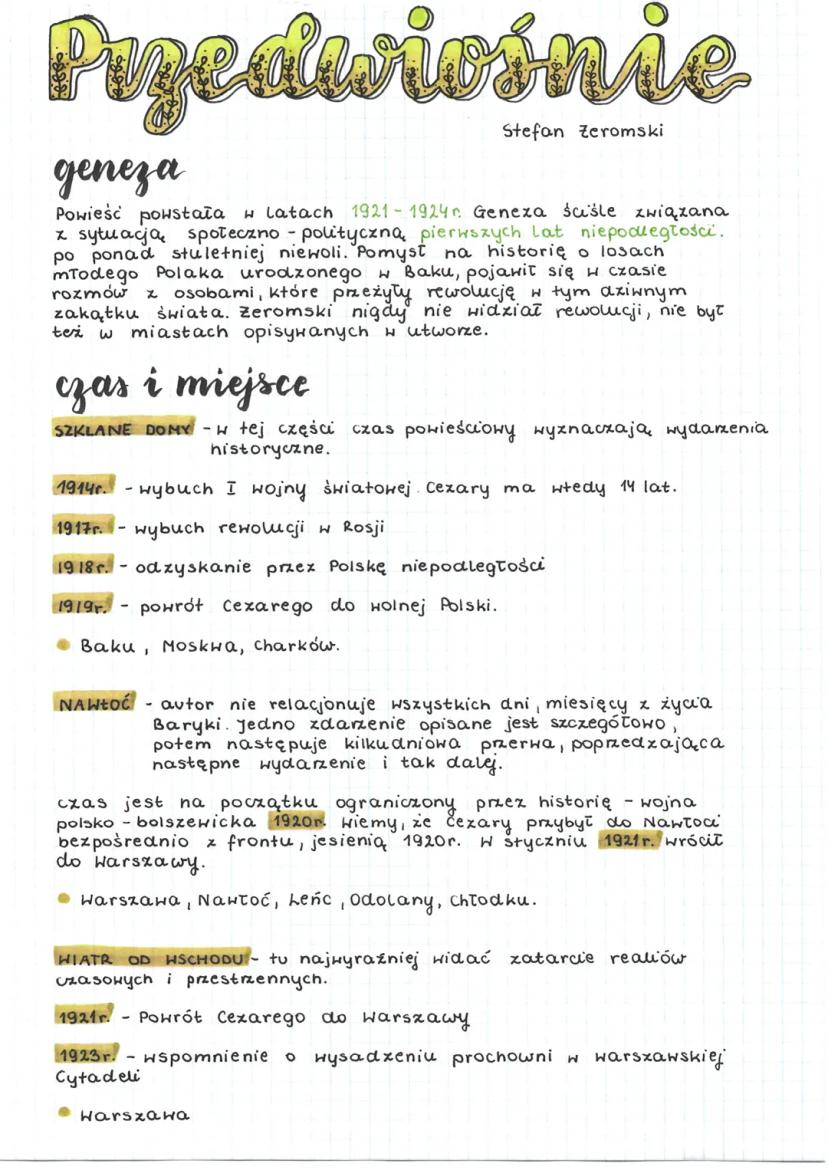 Przedwiośnie
Stefan Żeromski
geneza
Powieść powstała w latach 1921-1924r. Geneza ściśle związana
z sytuacją społeczno-polityczną pierwszych lat niepodległości.
po ponad stuletniej niewoli. Pomysł na historię o losach
młodego Polaka urodzonego w Baku, pojawił się w czasie
rozmów z osobami, które przeżyły rewolucję w tym dziwnym
zakątku świata. Żeromski nigdy nie widział rewolucji, nie był
też w miastach opisywanych w utworze.
czas i miejsce
SZKLANE DOMY - w tej części czas powieściowy wyznaczają wydarzenia
historyczne.
1914r. - wybuch I wojny światowej. Cezary ma wtedy 14 lat.
1917r. - wybuch rewolucji w Rosji
1918r. - odzyskanie przez Polskę niepodległości
1919r. - powrót Cezarego do wolnej Polski.
• Baku, Moskwa, Charków.
NAWŁOĆ - autor nie relacjonuje wszystkich dni, miesięcy z życia
Baryki. Jedno zdarzenie opisane jest szczegółowo,
potem następuje kilkudniowa przerwa, poprzedzająca
następne wydarzenie i tak dalej.
czas jest na początku ograniczony przez historię - wojna
polsko-bolszewicka 1920r. Wiemy, że Cezary przybył do Nawłoci
bezpośrednio z frontu, jesienią 1920r. W styczniu 1921r. wrócił
do Warszawy.
• Warszawa, Nawłoć, Leńc, Odolany, Chłodku.
WIATR OD WSCHODU - tu najwyraźniej widać zatarcie realiów
czasowych i przestrzennych.
1921r. - Powrót Cezarego do Warszawy
1923r. - wspomnienie o wysadzeniu prochowni w warszawskiej
Cytadeli
• Warszawa